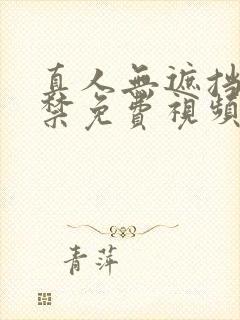 真人無遮挡
禁免費視頻
青萍